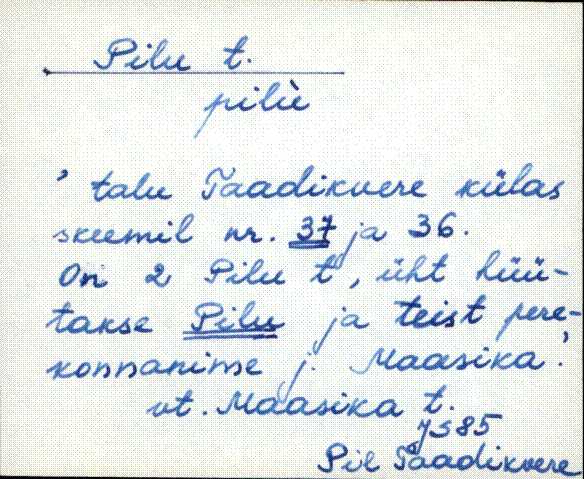 Pilu t.
pilù
' talu Taadikvere külas
skeemil nr. 37 ja 36.
On 2 Pilu t, üht hüü-
takse Pilu ja teist pere-
konnanime j. Maasika.'
vt. Maasika t.
JS 85
Pil Taadikvere